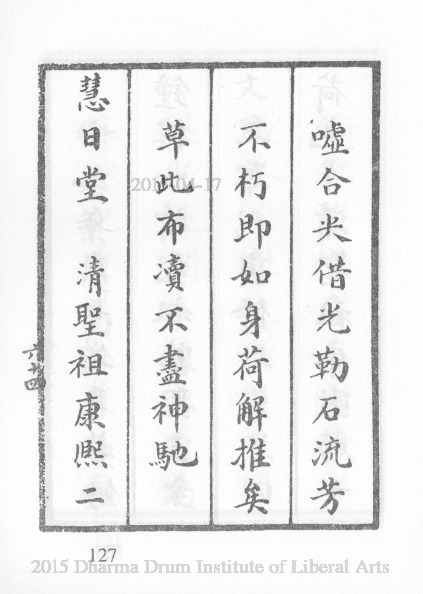 噓合尖借光勒石流芳
不朽即如身荷解推矣
草此布瀆不盡神馳
慧日堂 清聖祖康熈二
六十四
127
2015-04-17
2015 Dharma Drum Institute of Liberal Arts